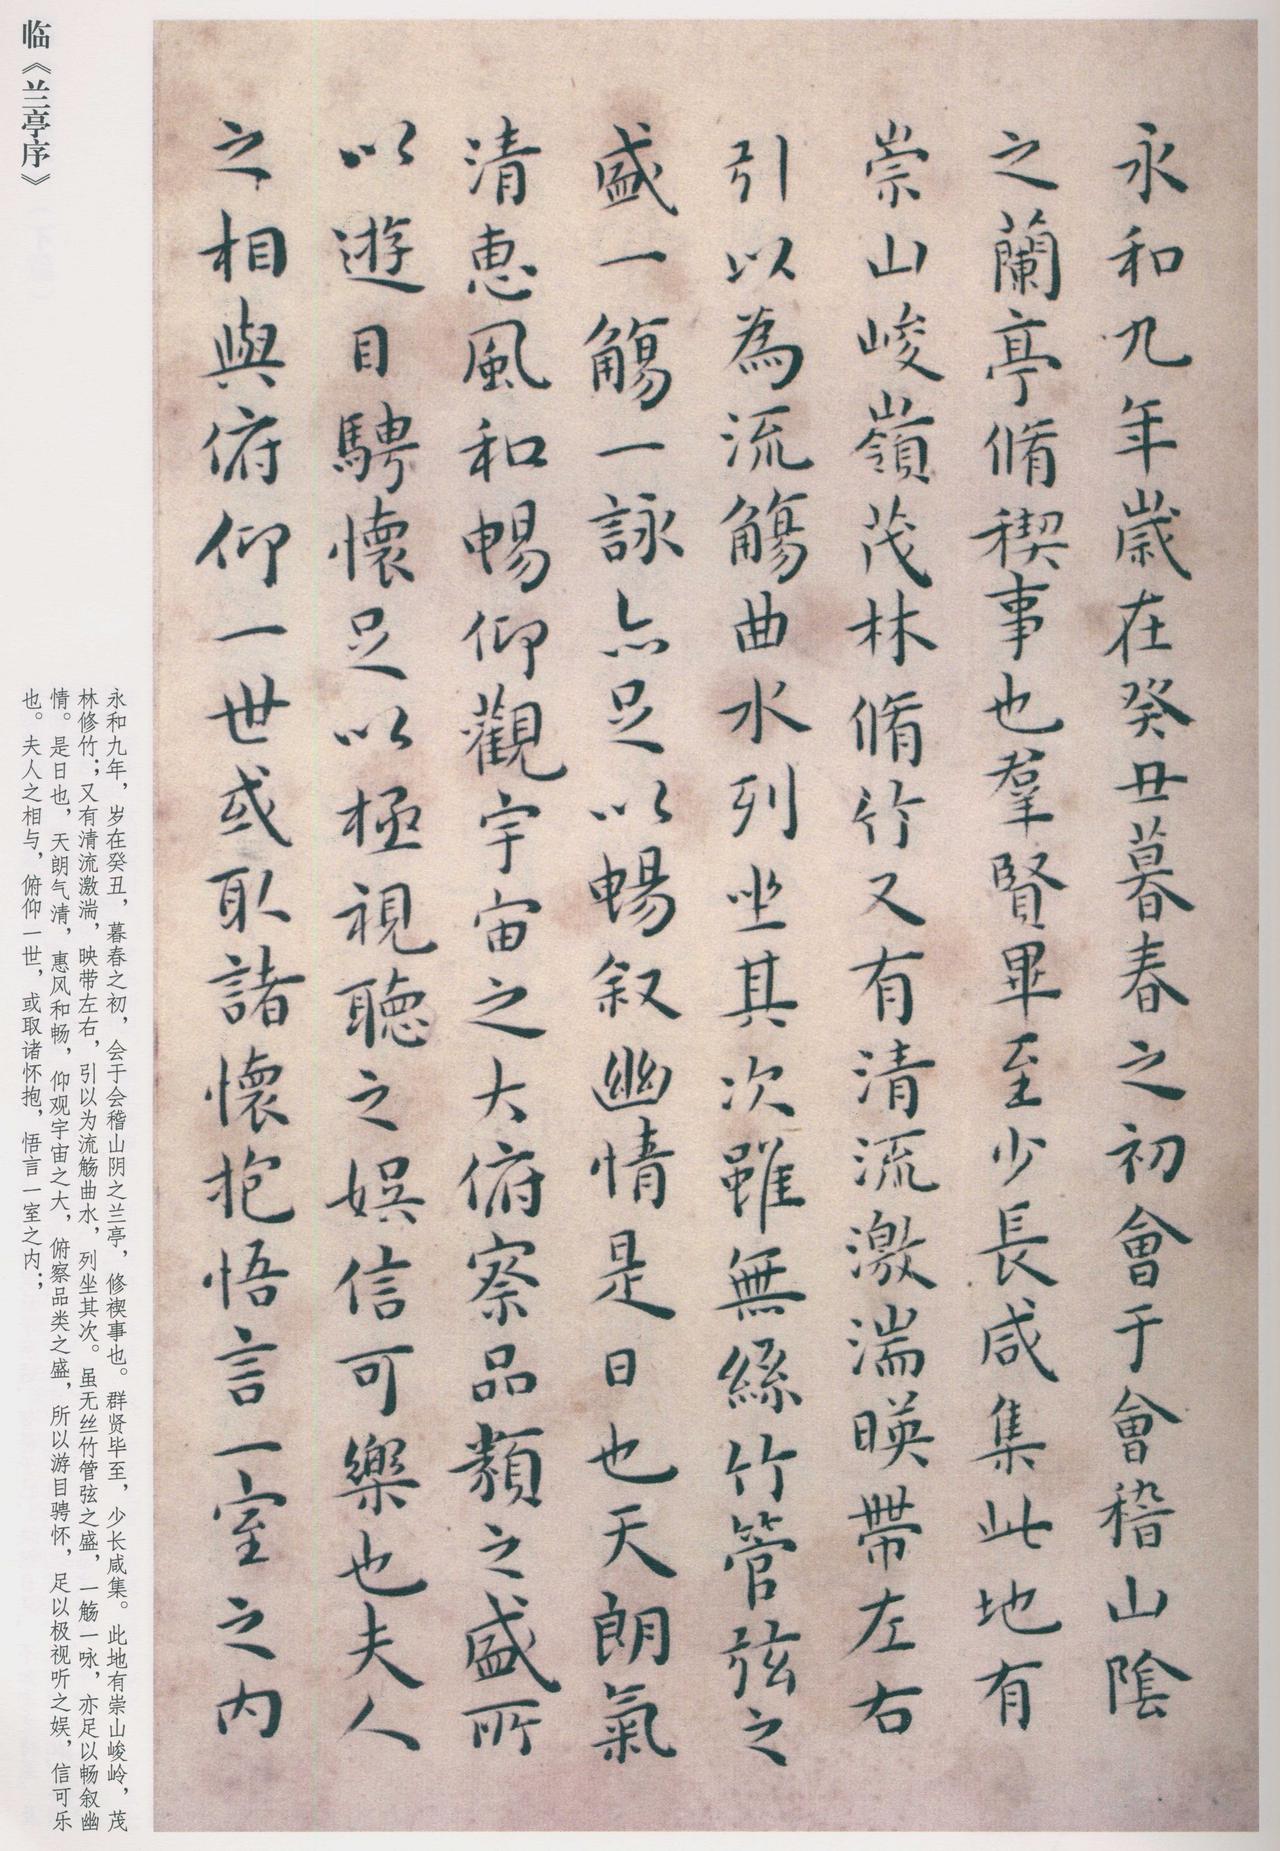 永和九年歲在癸丑暮春之初會于會稽山陰
之蘭亭脩稧事也羣賢畢至少長咸集此地有
崇山峻嶺茂林脩竹又有清流激湍暎帶左右
引以為流觴曲水列坐其次雖無絲竹管弦之
盛一觴一詠亦足以暢叙幽情是日也天朗氣
清惠風和暢仰觀宇宙之大俯察品類之盛所
以遊目騁懷足以極視聽之娛信可樂也夫人
之相與俯仰一世或取諸懷抱悟言一室之内
临《兰亭序》
永和九年，岁在癸丑，暮春之初，会于会稽山阴之兰亭，修禊事也。群贤毕至，少长咸集。此地有崇山峻岭，茂
林修竹；又有清流激湍，映带左右，引以为流觞曲水，列坐其次。虽无丝竹管弦之盛，一觞一咏，亦足以畅叙幽
情。是日也，天朗气清，惠风和畅，仰观宇宙之大，俯察品类之盛，所以游目骋怀，足以极视听之娱，信可乐
也。夫人之相与，俯仰一世，或取诸怀抱，悟言一室之内；